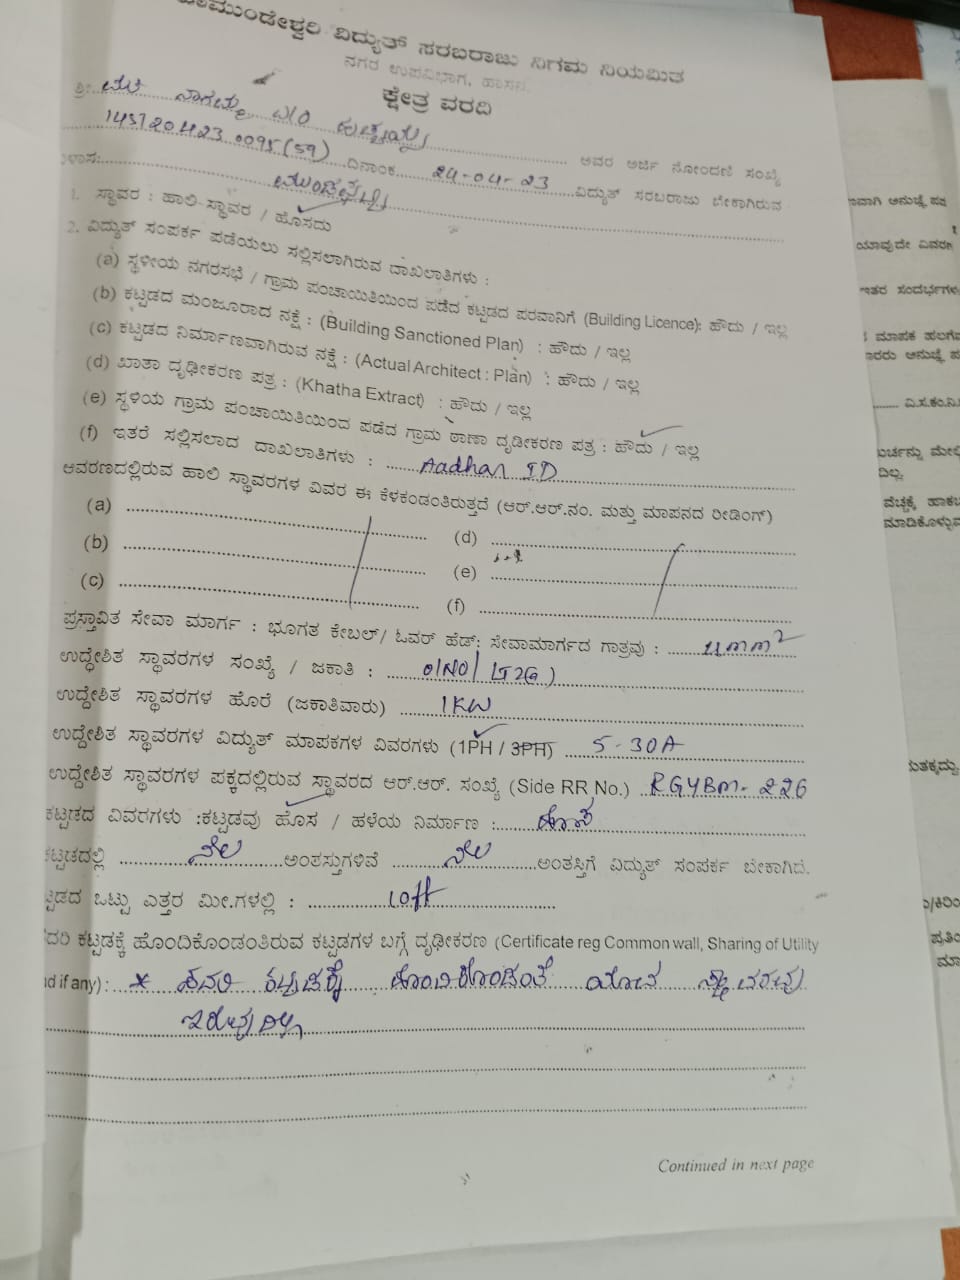 ಚಾಮುಂಡೇಶ್ವರಿ ವಿದ್ಯುತ್ ಸರಬರಾಜು ನಿಗಮ ನಿಯಮಿತ
ನಗರ ಉಪವಿಭಾಗ, ಹಾಸನ
ಕ್ಷೇತ್ರ ವರದಿ
ಶ್ರೀ. ನಾಗಮ್ಮ W/O
145120423 0095(59) ಅವರ ಅರ್ಜಿ ನೋಂದಣಿ ಸಂಖ್ಯೆ
ದಿನಾಂಕ 24-04-23 ವಿದ್ಯುತ್ ಸರಬರಾಜು ಬೇಕಾಗಿರುವ
1. ಸ್ಥಾವರ : ಹಾಲಿ ಸ್ಥಾವರ / ಹೊಸದು
2. ವಿದ್ಯುತ್ ಸಂಪರ್ಕ ಪಡೆಯಲು ಸಲ್ಲಿಸಲಾಗಿರುವ ದಾಖಲಾತಿಗಳು :
(a) ಸ್ಥಳೀಯ ನಗರಸಭೆ / ಗ್ರಾಮ ಪಂಚಾಯಿತಿಯಿಂದ ಪಡೆದ ಕಟ್ಟಡದ ಪರವಾನಿಗೆ (Building Licence): ಹೌದು / ಇಲ್ಲ
(b) ಕಟ್ಟಡದ ಮಂಜೂರಾದ ನಕ್ಷೆ : (Building Sanctioned Plan) : ಹೌದು / ಇಲ್ಲ
(c) ಕಟ್ಟಡದ ನಿರ್ಮಾಣವಾಗಿರುವ ನಕ್ಷೆ : (Actual Architect : Plan) : ಹೌದು / ಇಲ್ಲ
(d) ಖಾತಾ ದೃಢೀಕರಣ ಪತ್ರ : (Khatha Extract) : ಹೌದು / ಇಲ್ಲ
(e) ಸ್ಥಳಿಯ ಗ್ರಾಮ ಪಂಚಾಯಿತಿಯಿಂದ ಪಡೆದ ಗ್ರಾಮ ಠಾಣಾ ದೃಡೀಕರಣ ಪತ್ರ : ಹೌದು / ಇಲ್ಲ
(f) ಇತರೆ ಸಲ್ಲಿಸಲಾದ ದಾಖಲಾತಿಗಳು : Aadhar ID
ಆವರಣದಲ್ಲಿರುವ ಹಾಲಿ ಸ್ಥಾವರಗಳ ವಿವರ ಈ ಕೆಳಕಂಡಂತಿರುತ್ತದೆ (ಆರ್.ಆರ್.ನಂ. ಮತ್ತು ಮಾಪನದ ರೀಡಿಂಗ್)
(a) (d)
(b) (e)
(c) (f)
ಪ್ರಸ್ತಾವಿತ ಸೇವಾ ಮಾರ್ಗ : ಭೂಗತ ಕೇಬಲ್/ ಓವರ್ ಹೆಡ್: ಸೇವಾಮಾರ್ಗದ ಗಾತ್ರವು :
ಉದ್ದೇಶಿತ ಸ್ಥಾವರಗಳ ಸಂಖ್ಯೆ / ಜಕಾತಿ : 01NO/
ಉದ್ದೇಶಿತ ಸ್ಥಾವರಗಳ ಹೊರೆ (ಜಕಾತಿವಾರು) 1KW
ಉದ್ದೇಶಿತ ಸ್ಥಾವರಗಳ ವಿದ್ಯುತ್ ಮಾಪಕಗಳ ವಿವರಗಳು (1PH / 3PH) 5-30A
ಉದ್ದೇಶಿತ ಸ್ಥಾವರಗಳ ಪಕ್ಕದಲ್ಲಿರುವ ಸ್ಥಾವರದ ಆರ್.ಆರ್. ಸಂಖ್ಯೆ (Side RR No.) RGYBM-226
ಕಟ್ಟಡದ ವಿವರಗಳು :ಕಟ್ಟಡವು ಹೊಸ / ಹಳೆಯ ನಿರ್ಮಾಣ : ಹೊಸ
ಕಟ್ಟಡದಲ್ಲಿ ನೆಲ ಅಂತಸ್ತುಗಳಿವೆ ನೆಲ ಅಂತಸ್ತಿಗೆ ವಿದ್ಯುತ್ ಸಂಪರ್ಕ ಬೇಕಾಗಿದೆ.
ಕಟ್ಟಡದ ಒಟ್ಟು ಎತ್ತರ ಮೀ.ಗಳಲ್ಲಿ : 10ft
ಸದರಿ ಕಟ್ಟಡಕ್ಕೆ ಹೊಂದಿಕೊಂಡಂತಿರುವ ಕಟ್ಟಡಗಳ ಬಗ್ಗೆ ದೃಢೀಕರಣ (Certificate reg Common wall, Sharing of Utility
if any) : * ಸದರಿ ಕಟ್ಟಡಕ್ಕೆ ಹೊಂದಿಕೊಂಡಂತೆ ಯಾವ ಸ್ಥಾವರವು
ಇರುವುದಿಲ್ಲ
Continued in next page